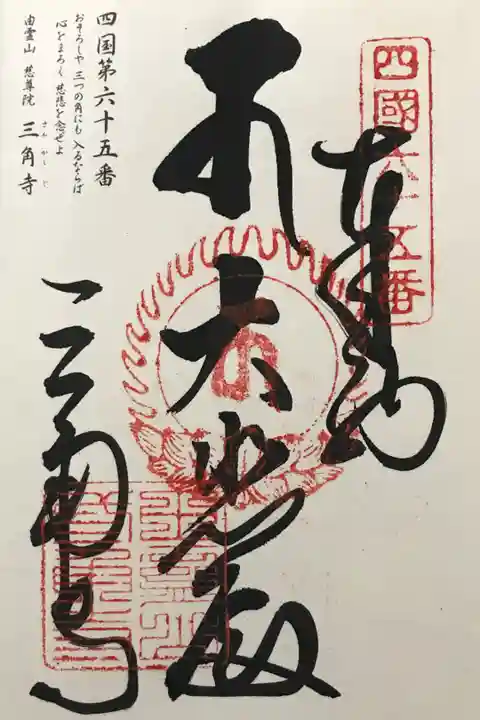 四國六十五番
奉納
大悲殿
三角寺
四国第六十五番
おそろしや 三つの角にも 入るならば
心をまろく 慈悲を念ぜよ
由霊山 慈尊院 三角寺
さんかくじ